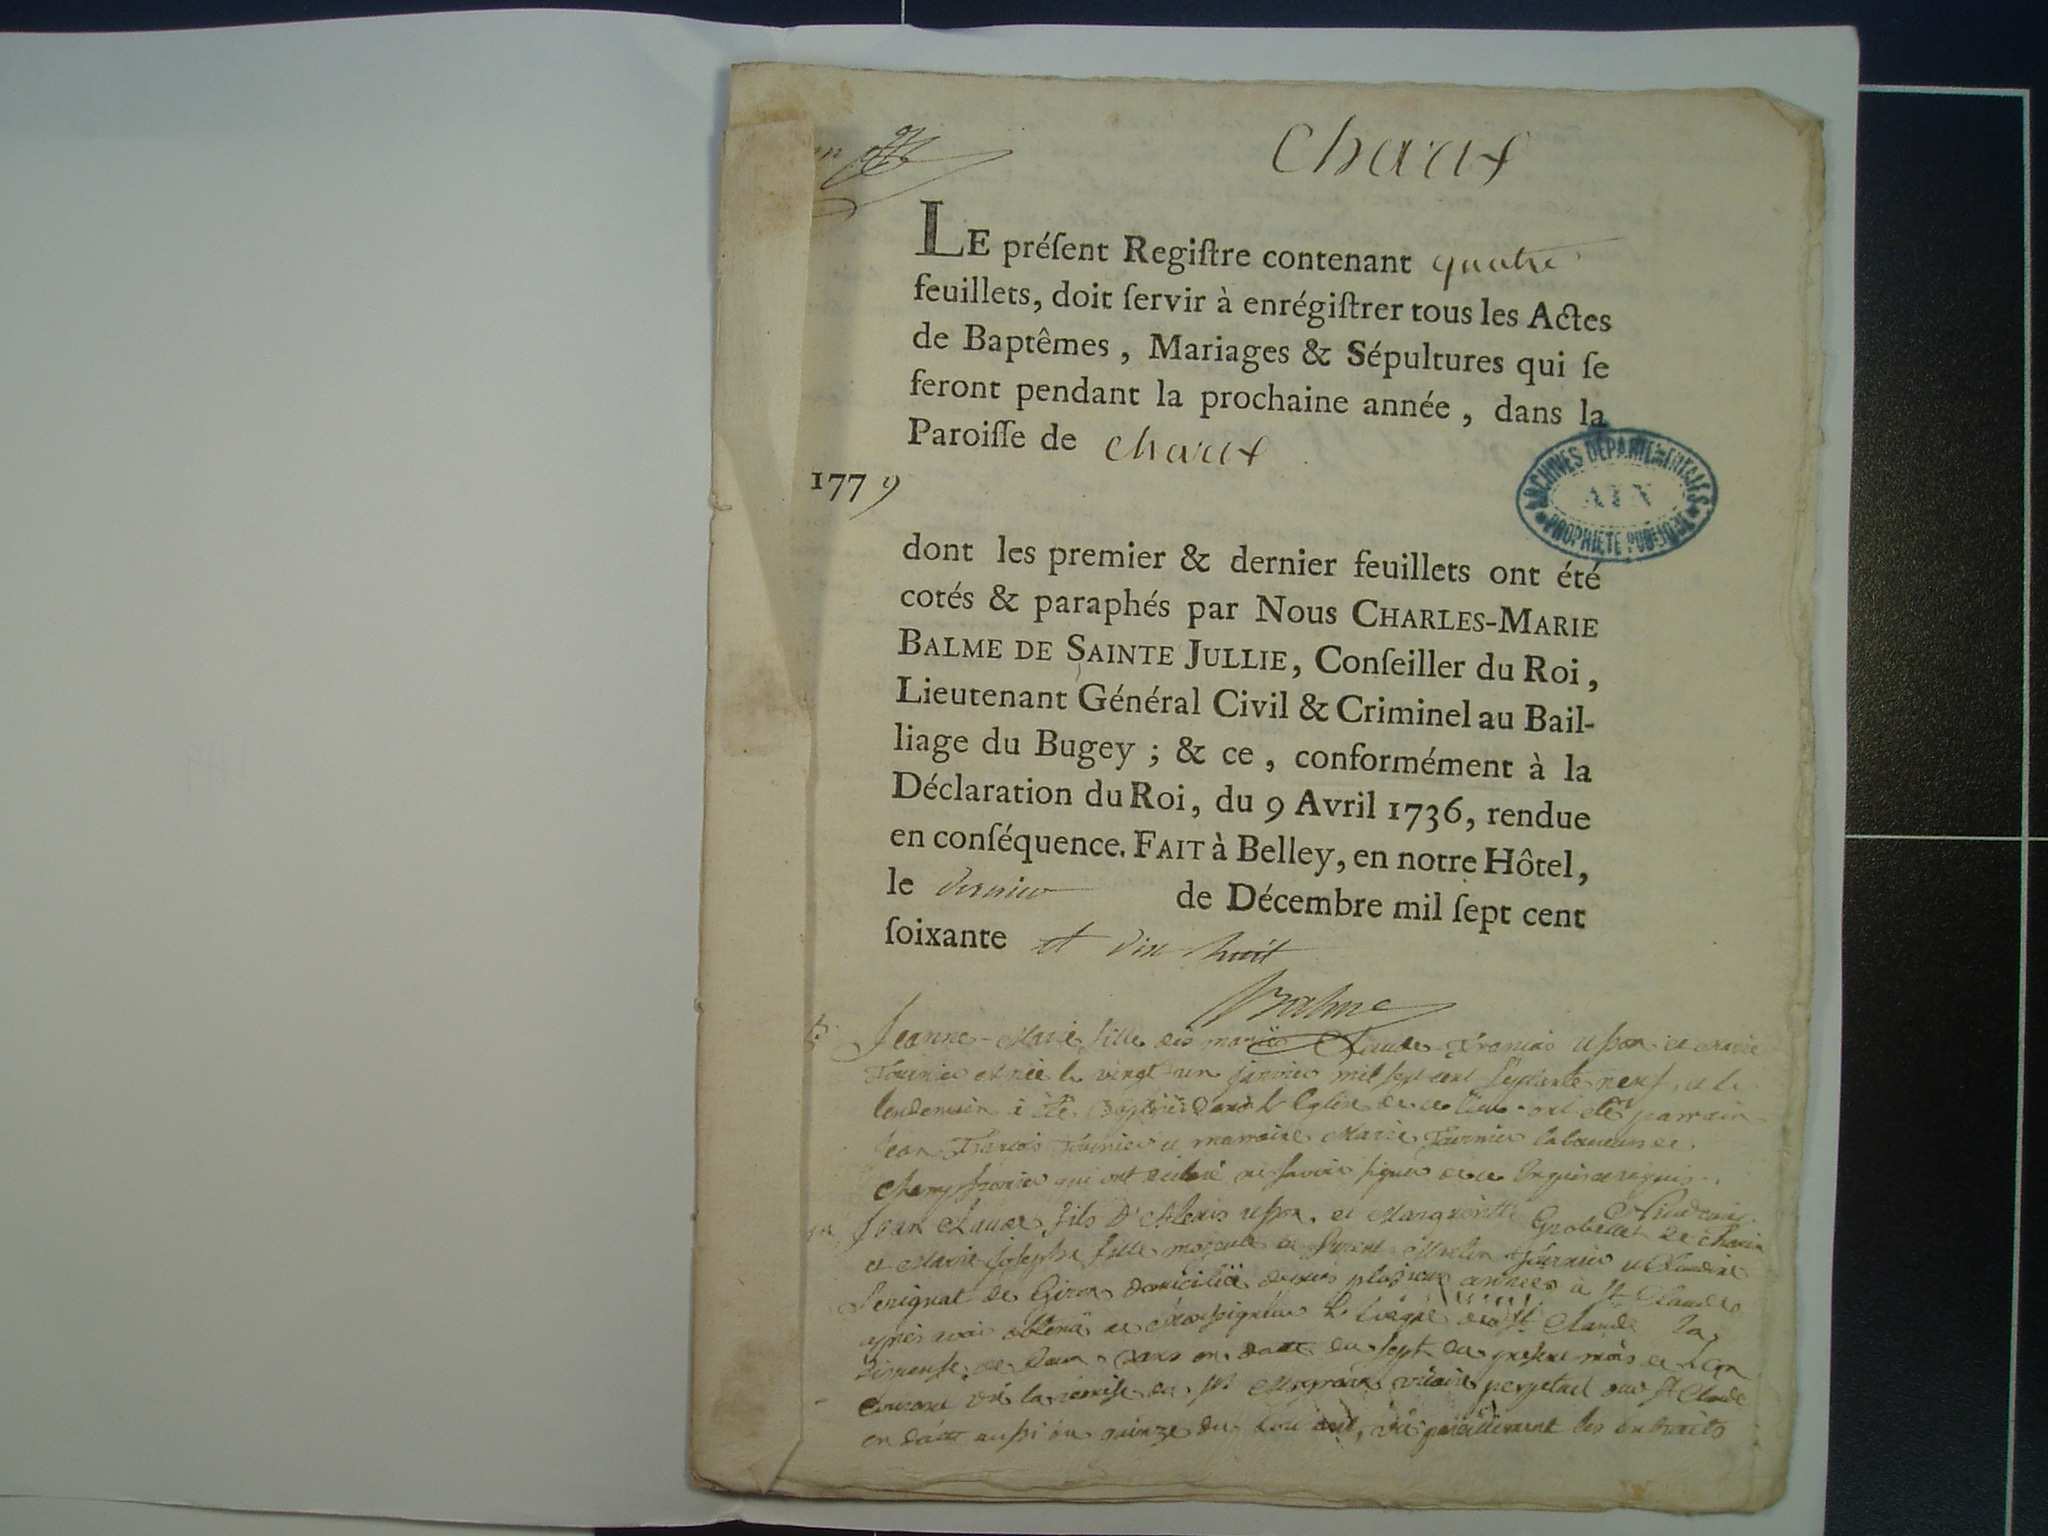 Charix
LE préſent Regiſtre contenant quatre
feuillets, doit ſervir à enrégiſtrer tous les Actes
de Baptêmes, Mariages & Sépultures qui ſe
feront pendant la prochaine année, dans la
Paroiſſe de Charix
1779
ARCHIVES DÉPARTEMENTALES
AIN
PROPRIÉTÉ PUBLIQUE
dont les premier & dernier feuillets ont été
cotés & paraphés par Nous CHARLES-MARIE
BALME DE SAINTE JULLIE, Conſeiller du Roi,
Lieutenant Général Civil & Criminel au Bail-
liage du Bugey; & ce, conformément à la
Déclaration du Roi, du 9 Avril 1736, rendue
en conſéquence. FAIT à Belley, en notre Hôtel,
le dernier de Décembre mil ſept cent
ſoixante et dix huit
Balme
Jeanne-Marie fille des mariés Claude François et Marie
Fournier est née le vingt un janvier mil sept cent septante neuf, et le
lendemain a été dans l'Eglise de ce lieu ont été parrain
Jean François Fournier et marraine Marie Fournier laboureurs de
qui ont déclaré ne savoir signer de ce enquis et requis
Jean Claude fils D'Alexis et Margueritte de Charix
et Marie Josephe fille Fournier et Claudine
de Giron domiciliée depuis plusieurs années à St Claude
après avoir obtenu de Monseigneur L'Evêque de St Claude la
Dispense de en datte du sept du présent mois de
courant vû la remise du Sr vicaire perpetuel de St Claude
en datte aussi du quinze du courant, vû pareillement les extraits